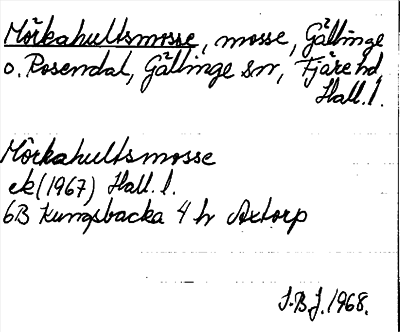 Mörkahultsmosse, mosse, Gällinge
o. Rosendal, Gällinge sn, Fjäre hd,
Hall. l.
Mörkahultsmosse
ek (1967) Hall. l.
6B Kungsbacka 4 h Axtorp
S.B.J. 1968.